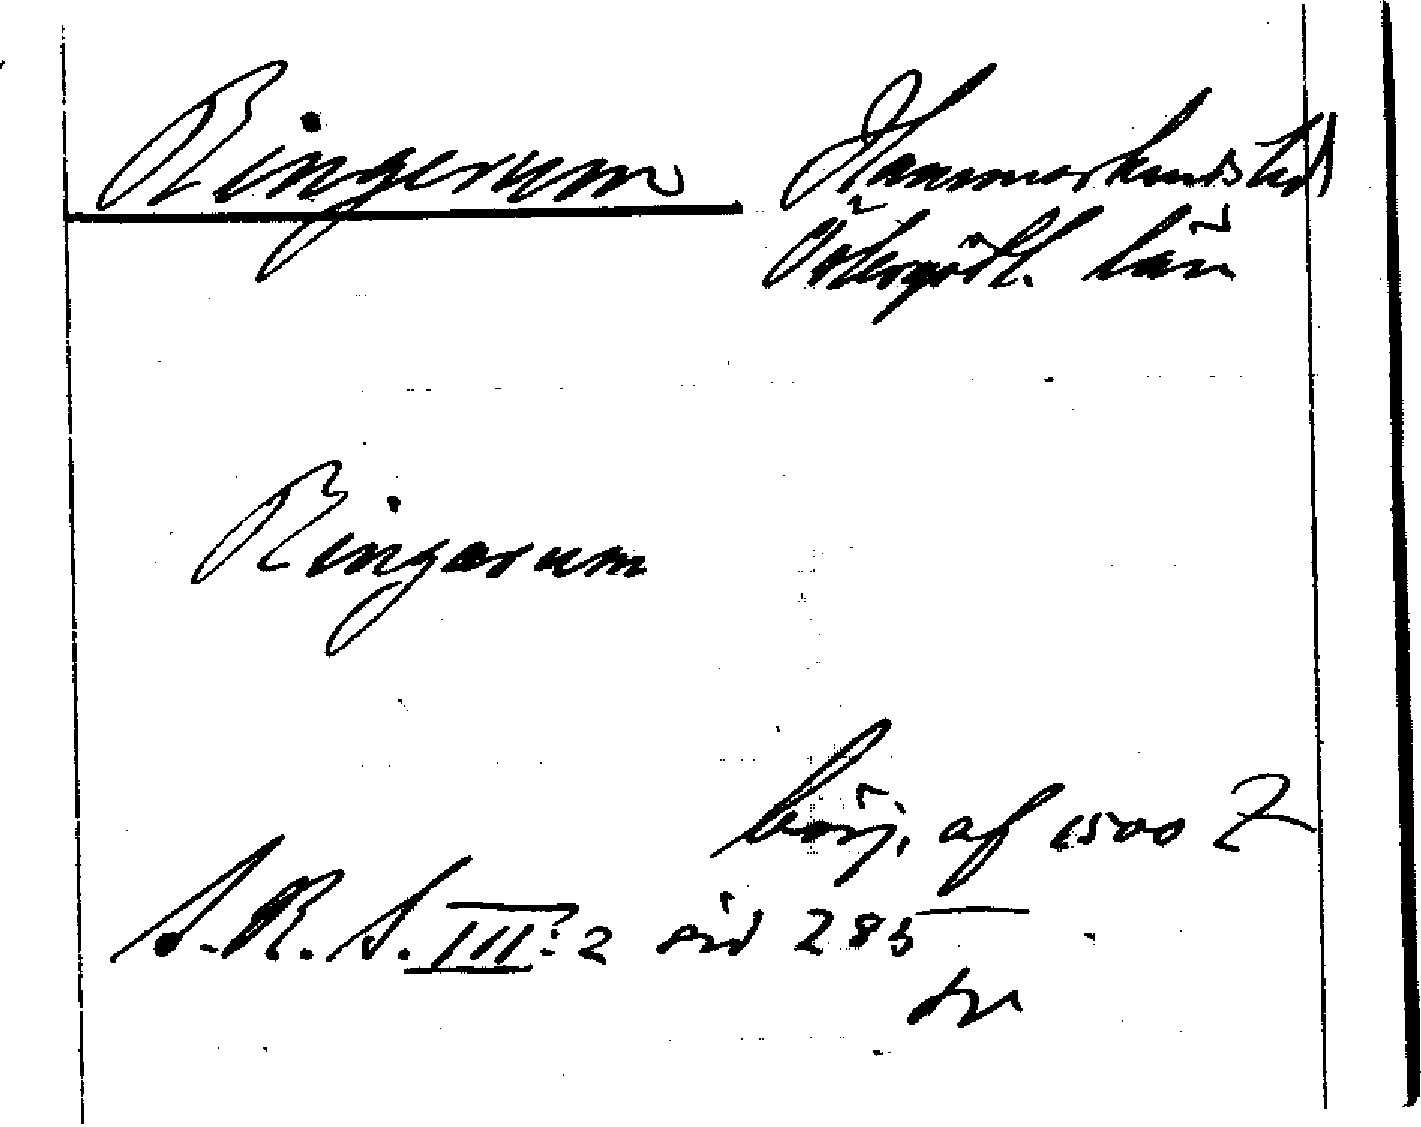 Ringerum Hammarkinds hd
Östergötl. län
Ringarum
börj. af 1500 t
S. R. S. III: 2 sid 285